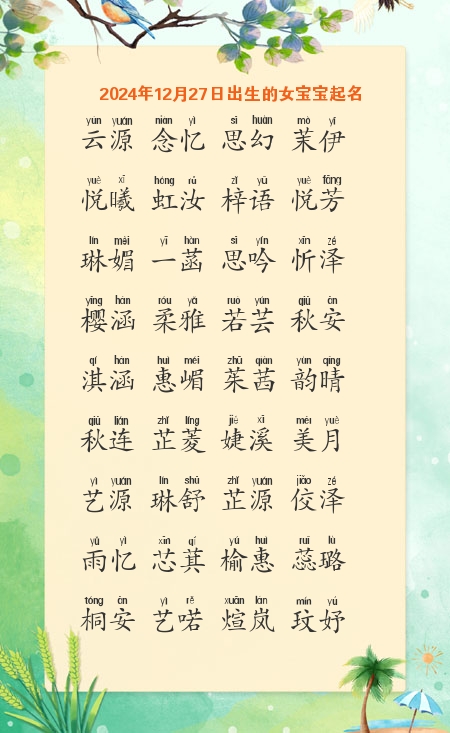 2024年12月27日出生的女宝宝起名
yún yuán niàn yì sī huàn mò yī
云源 念忆 思幻 茉伊
yuè xī hóng rǔ zǐ yǔ yuè fāng
悦曦 虹汝 梓语 悦芳
lín mèi yī hàn sī yín xīn zé
琳媚 一菡 思吟 忻泽
yīng hán róu yǎ ruò yún qiū ān
樱涵 柔雅 若芸 秋安
qí hán huì méi zhū qiàn yùn qíng
淇涵 惠嵋 茱茜 韵晴
qiū lián zhǐ líng jié xī měi yuè
秋连 芷菱 婕溪 美月
yì yuán lín shū zhǐ yuán jiǎo zé
艺源 琳舒 芷源 佼泽
yǔ yì xīn qí yú huì ruǐ lù
雨忆 芯萁 榆惠 蕊璐
tóng ān yì rě xuān lán mín yú
桐安 艺喏 煊岚 玟妤